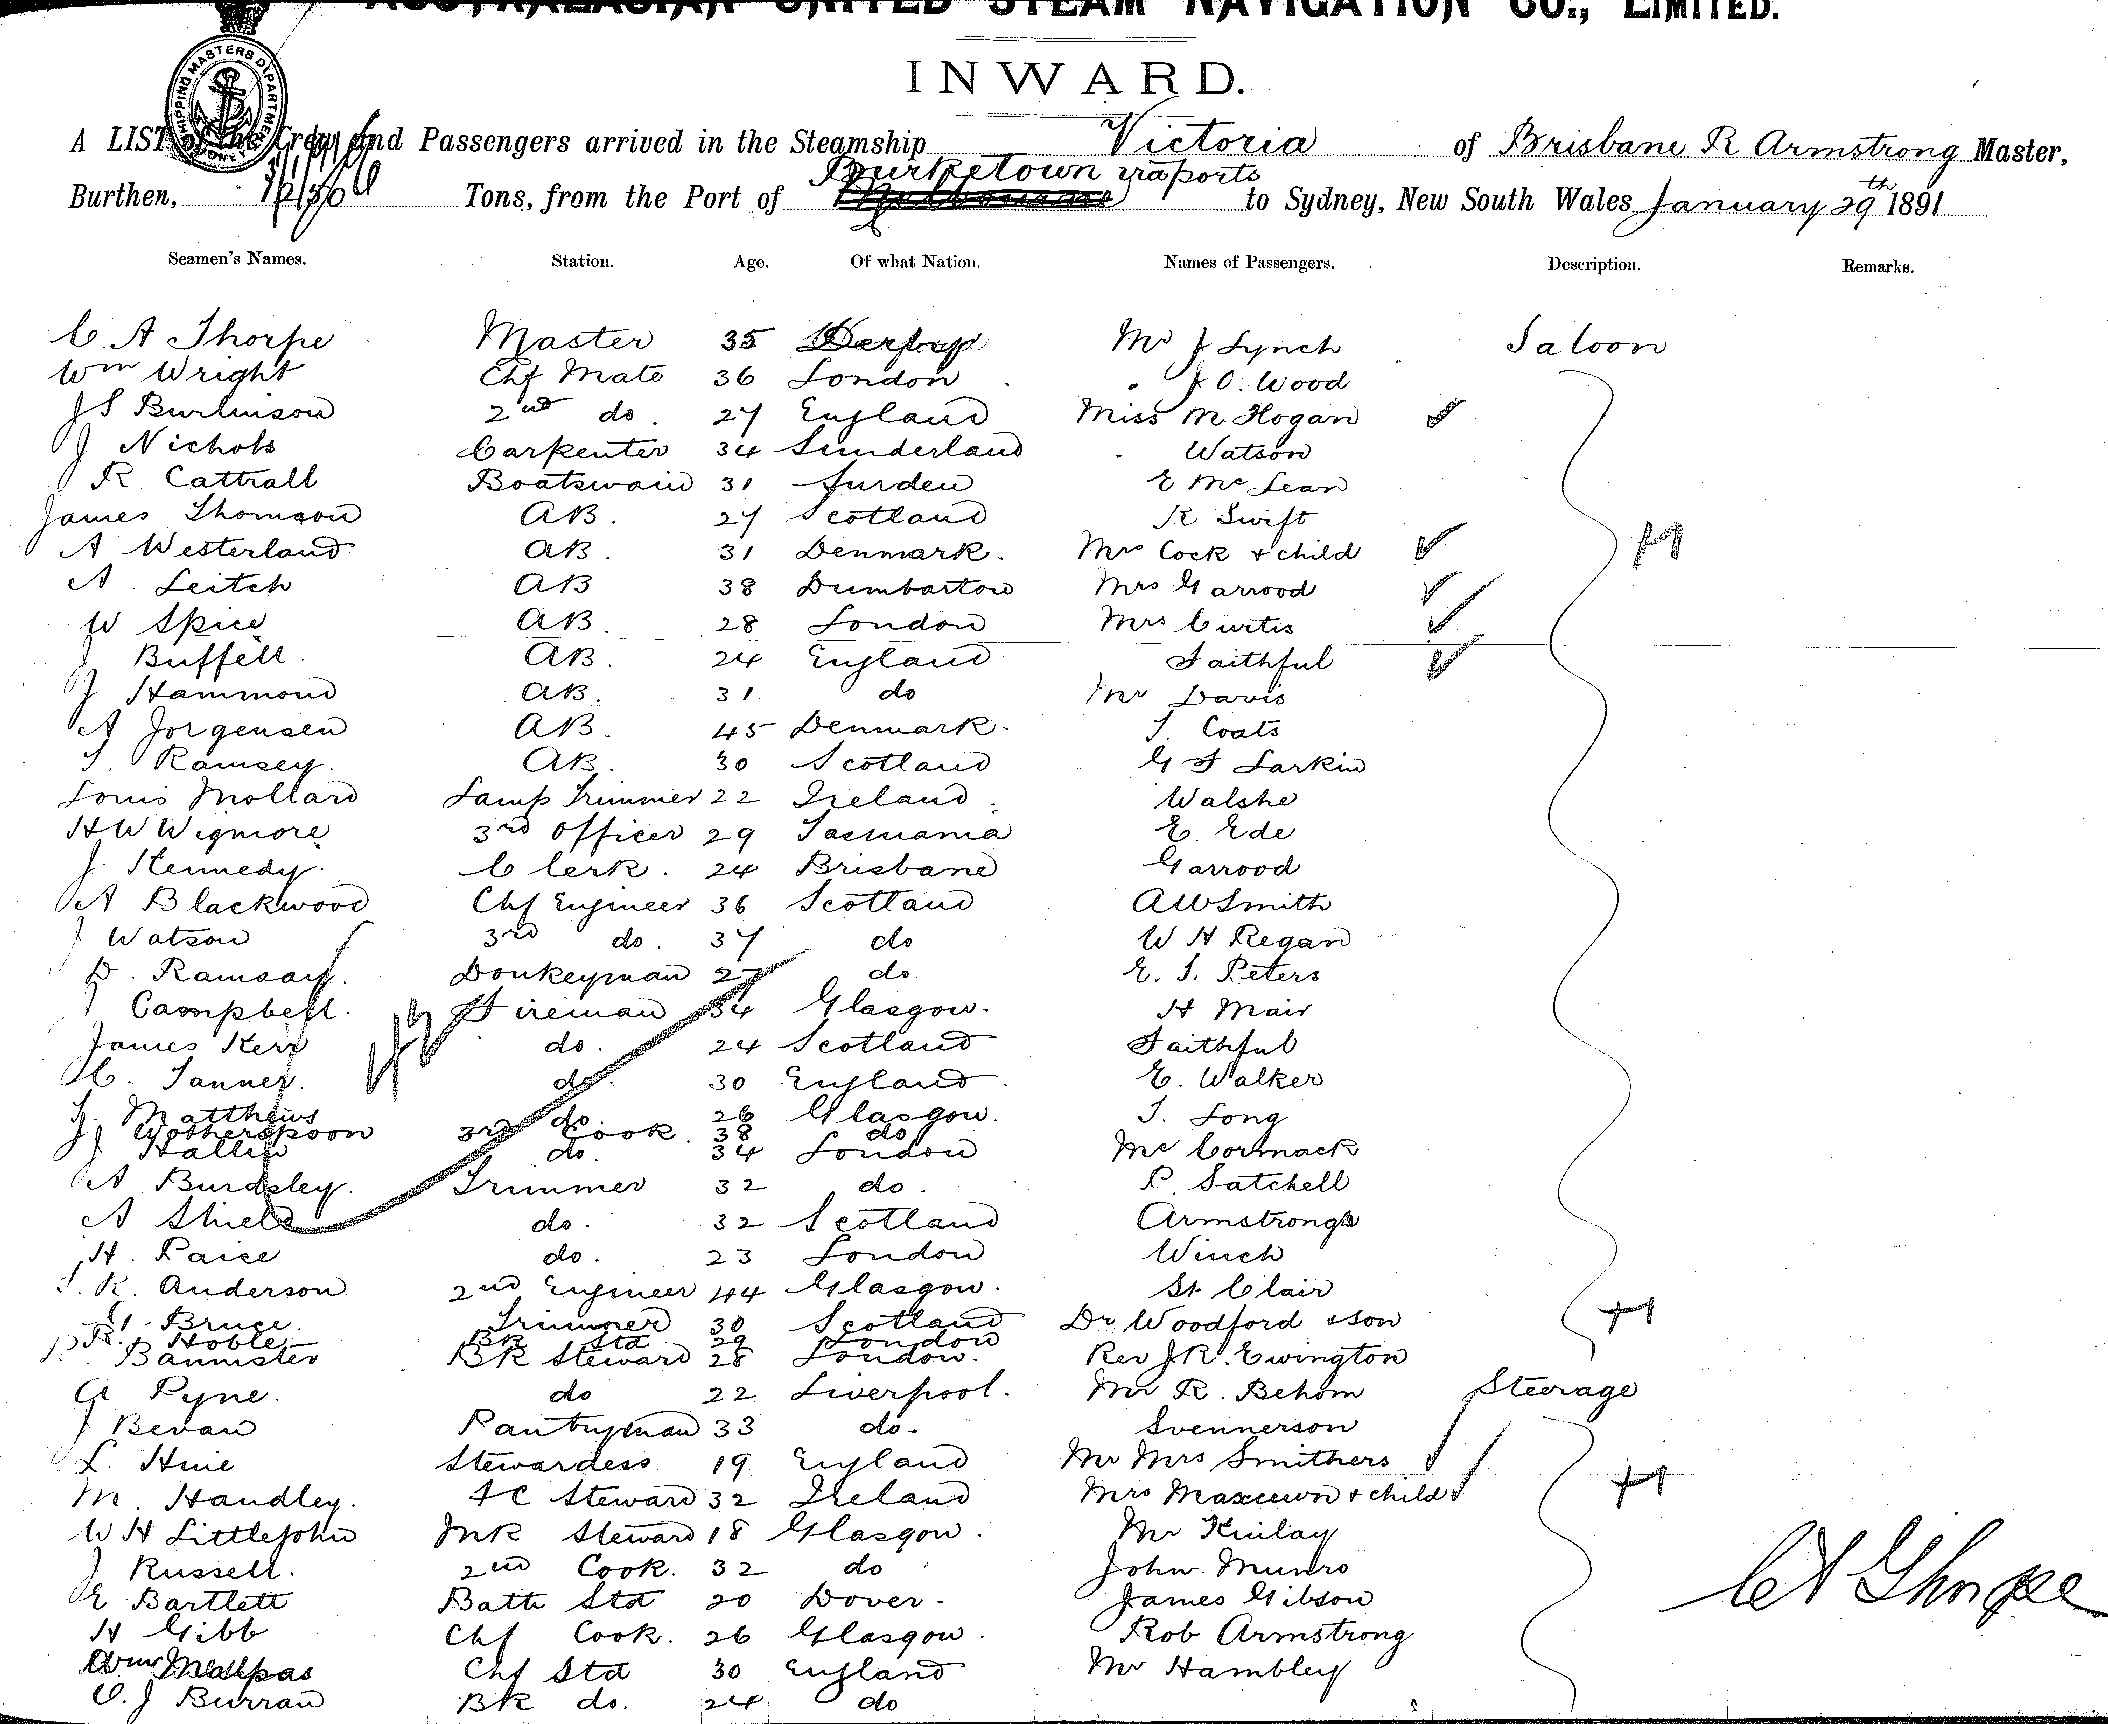 AUSTRALASIAN UNITED STEAM NAVIGATION CO., LIMITED.
INWARD.
SHIPPING MASTERS DEPARTMENT SYDNEY
A LIST of the Crew and Passengers arrived in the Steamship Victoria of Brisbane R Armstrong Master,
Burthen, Tons, from the Port of Burketown via ports to Sydney, New South Wales January 29th 1891
Seamen's Names. Station. Age. Of what Nation. Names of Passengers. Description. Remarks.
C A Thorpe Master 35 Mr J Lynch Saloon
Wm Wright Chf Mate 36 London " J O. Wood
J S Burlinson 2nd do. 27 England Miss M Hogan
J Nichols Carpenter 34 Sunderland Watson
R Cattrall Boatswain 31 E McLean
James Thomson AB. 27 Scotland R Swift
A Westerland AB. 31 Denmark. Mrs Cock + child
A Leitch AB 38 Dumbarton Mrs Garrood
W Spice AB. 28 London Mrs Curtis
J Buffett AB. 24 England Faithful
J Hammond AB. 31 do Mr Davis
A Jorgensen AB. 45 Denmark. T. Coats
T. Ramsey. AB. 30 Scotland G F Larkin
Louis Mollard Lamp Trimmer 22 Ireland Walshe
H W Wigmore 3rd Officer 29 Tasmania E. Ede
J. Kennedy. Clerk. 24 Brisbane Garrood
A Blackwood Chf Engineer 36 Scotland A W Smith
J Watson 3rd do. 37 do W H Regan
D. Ramsay. Donkeyman 27 do E. S. Peters
J Campbell. Fireman 34 Glasgow. H Mair
James Kerr do. 24 Scotland Faithful
C. Tanner. do. 30 England E. Walker
J. Matthews do. 26 Glasgow. T. Long
J Wotherspoon 3rd Cook. 38 do
J Hallin do. 34 London McCormack
A Burdsley. Trimmer 32 do. P. Satchell
A Shield do. 32 Scotland Armstrong
H. Paice do. 23 London Winch
T. R. Anderson 2nd Engineer 44 Glasgow. St Clair
G. Bruce. Trimmer 30 Scotland Dr Woodford + son
R. Noble BR Std 29 London
P. Bannister BR Steward 28 London. Rev J R. Ewington
A Pyne. do 22 Liverpool. Mr R. Behom Steerage
J Bevan Pantryman 33 do. Svennerson
L. Hine Stewardess 19 England Mr Mrs Smithers
M. Handley. FC Steward 32 Ireland Mrs + child
W H Littlejohn Steward 18 Glasgow. Mr Kinlay
J Russell. 2nd Cook. 32 do John Munro
E Bartlett Bath Std 20 Dover. James Gibson
H Gibb Chf Cook. 26 Glasgow. Rob Armstrong
Wm Malpas Chf Std 30 England Mr Hambley
C. J Burran BR do. 24 do
C A Thorpe